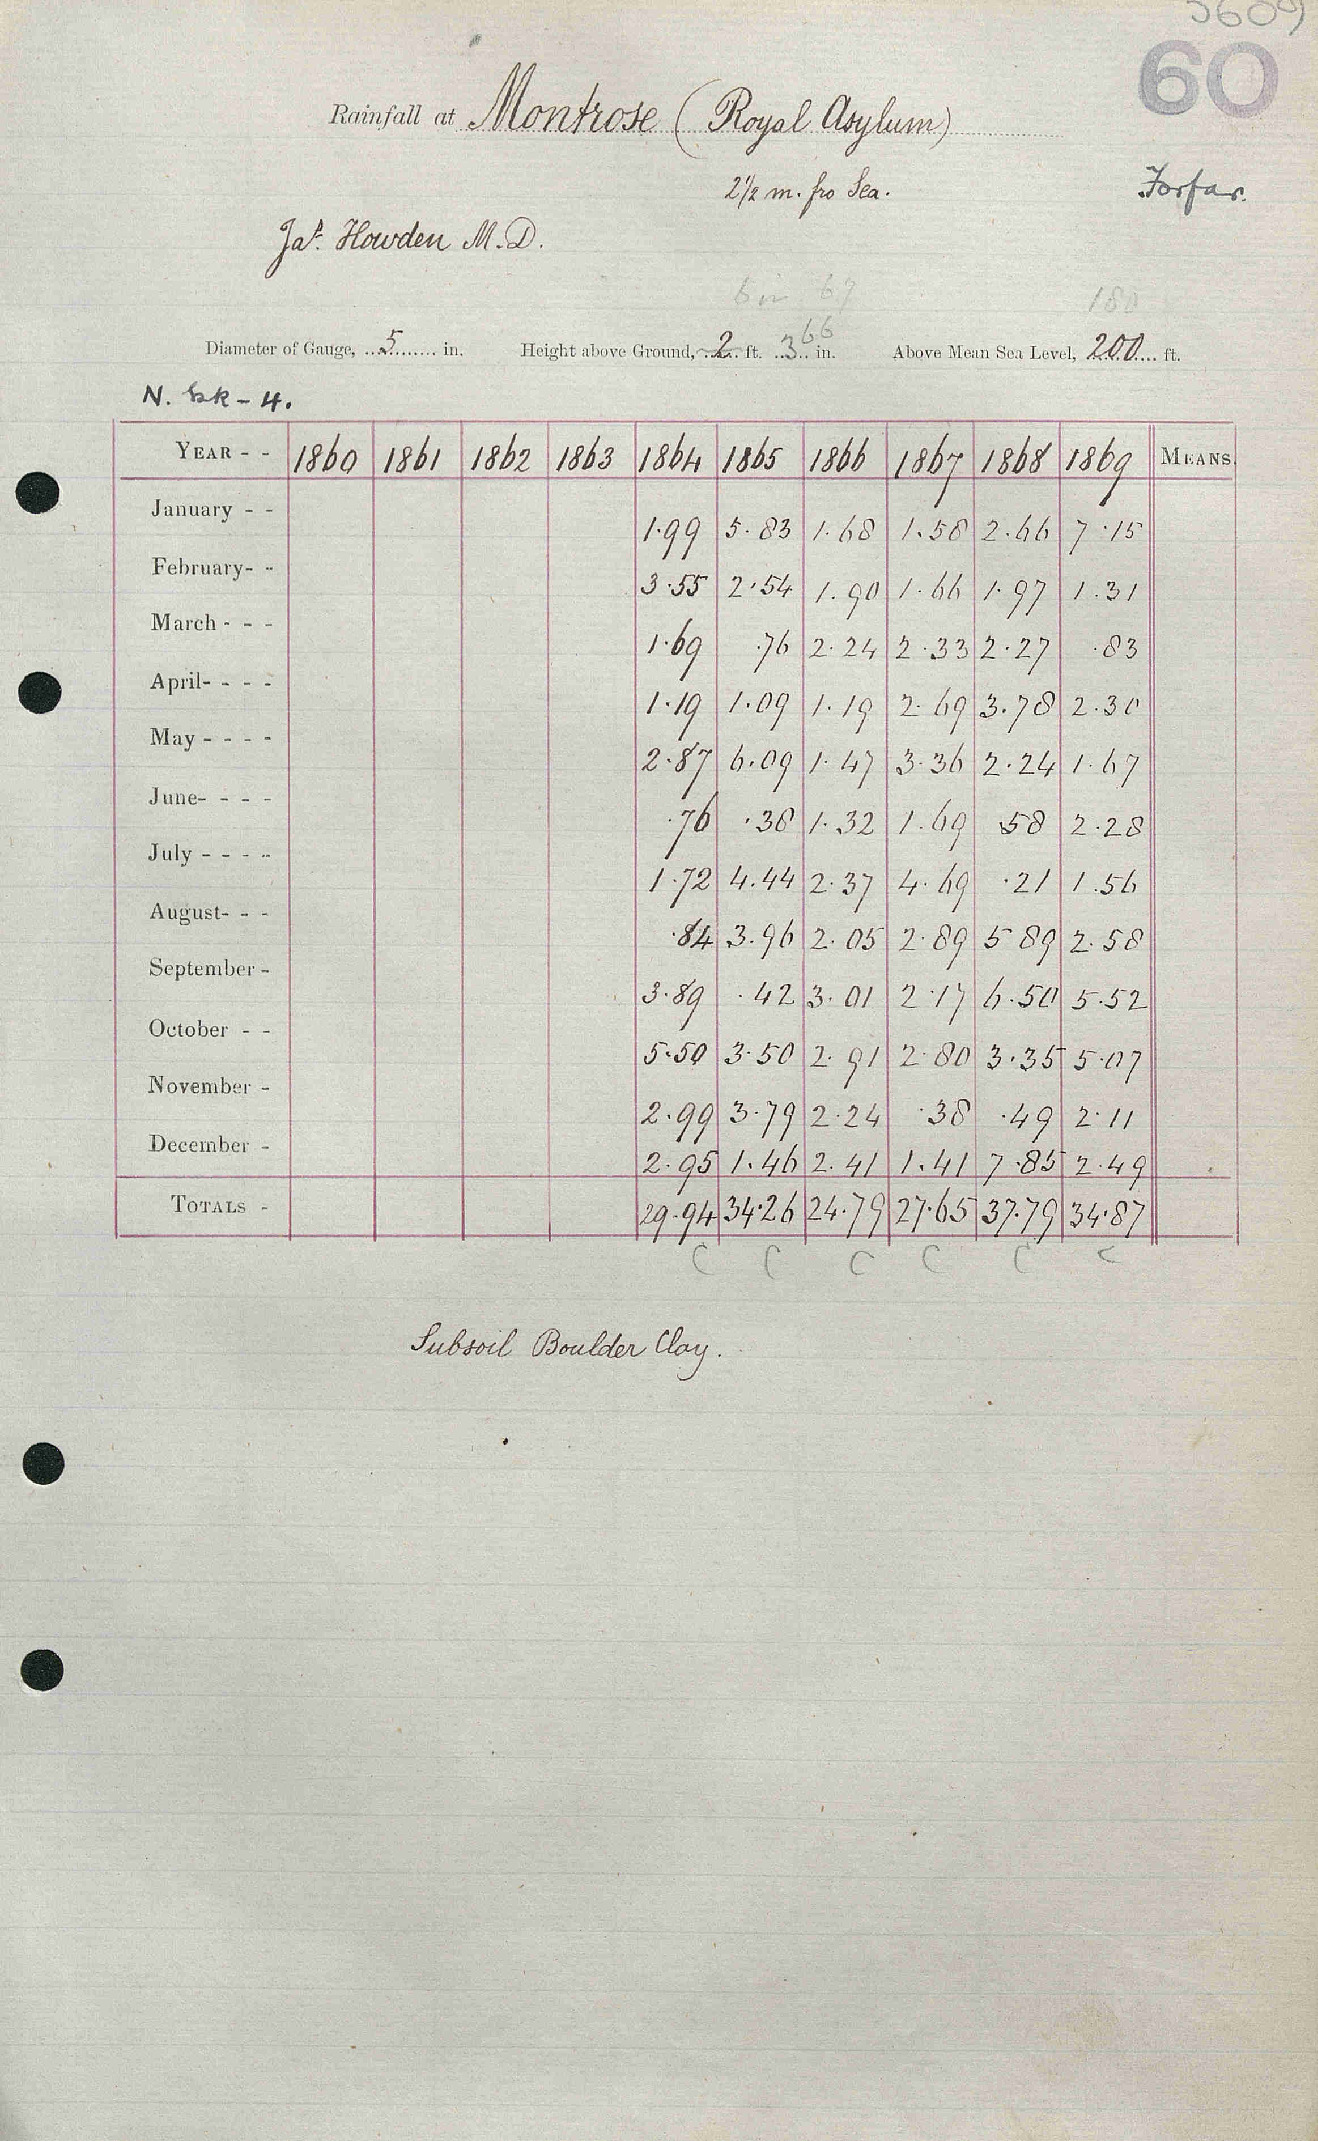 60
Rainfall at Montrose (Royal Asylum)
2½ m. fro Sea.
Forfar.
Jas. Howden M.D.
6 in 67
180
66
Diameter of Gauge, 5 in. Height above Ground, 2 ft. 3 in. Above Mean Sea Level, 200 ft.
N. bk - 4.
YEAR - - 1860 1861 1862 1863 1864 1865 1866 1867 1868 1869 MEANS.
January - - 1.99 5.83 1.68 1.58 2.66 7.15
February - - 3.55 2.54 1.90 1.66 1.97 1.31
March - - - 1.69 .76 2.24 2.33 2.27 .83
April - - - - 1.19 1.09 1.19 2.69 3.78 2.30
May - - - - 2.87 6.09 1.47 3.36 2.24 1.67
June - - - - .76 .38 1.32 1.69 .58 2.28
July - - - - 1.72 4.44 2.37 4.69 .21 1.56
August - - - .84 3.96 2.05 2.89 5 89 2.58
September - 3.89 .42 3.01 2.17 6.50 5.52
October - - 5.50 3.50 2.91 2.80 3.35 5.07
November - 2.99 3.79 2.24 .38 .49 2.11
December - 2.95 1.46 2.41 1.41 7.85 2.49
TOTALS - 29.94 34.26 24.79 27.65 37.79 34.87
C C C C C C
Subsoil Boulder Clay.